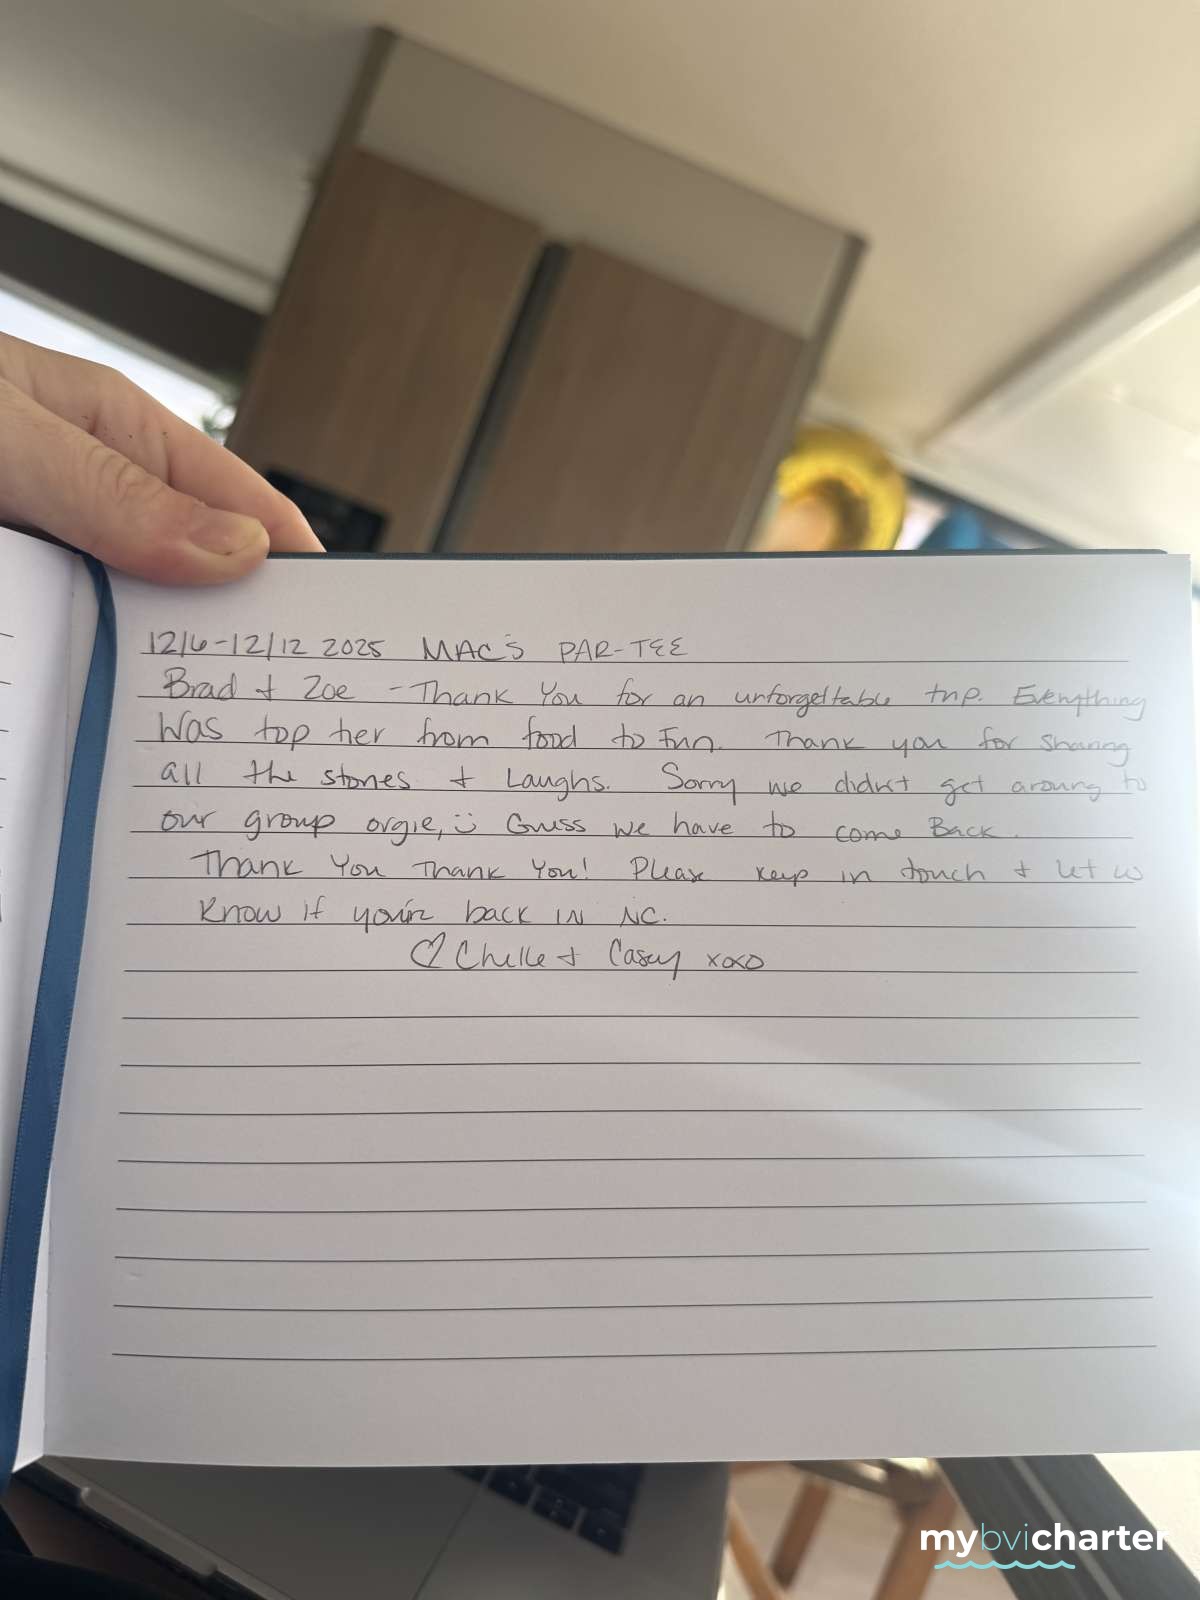 12/6-12/12 2025 MAC'S PAR-TEE
Brad + Zoe - Thank You for an unforgettable trip. Everything
Was top tier from food to Fun. Thank you for sharing
all the stories + Laughs. Sorry we didn't get around to
our group orgie, Guess we have to come Back.
Thank You Thank You! Please keep in touch + let us
Know if you're back in NC.
♡ Chelle + Casey xoxo
mybvicharter